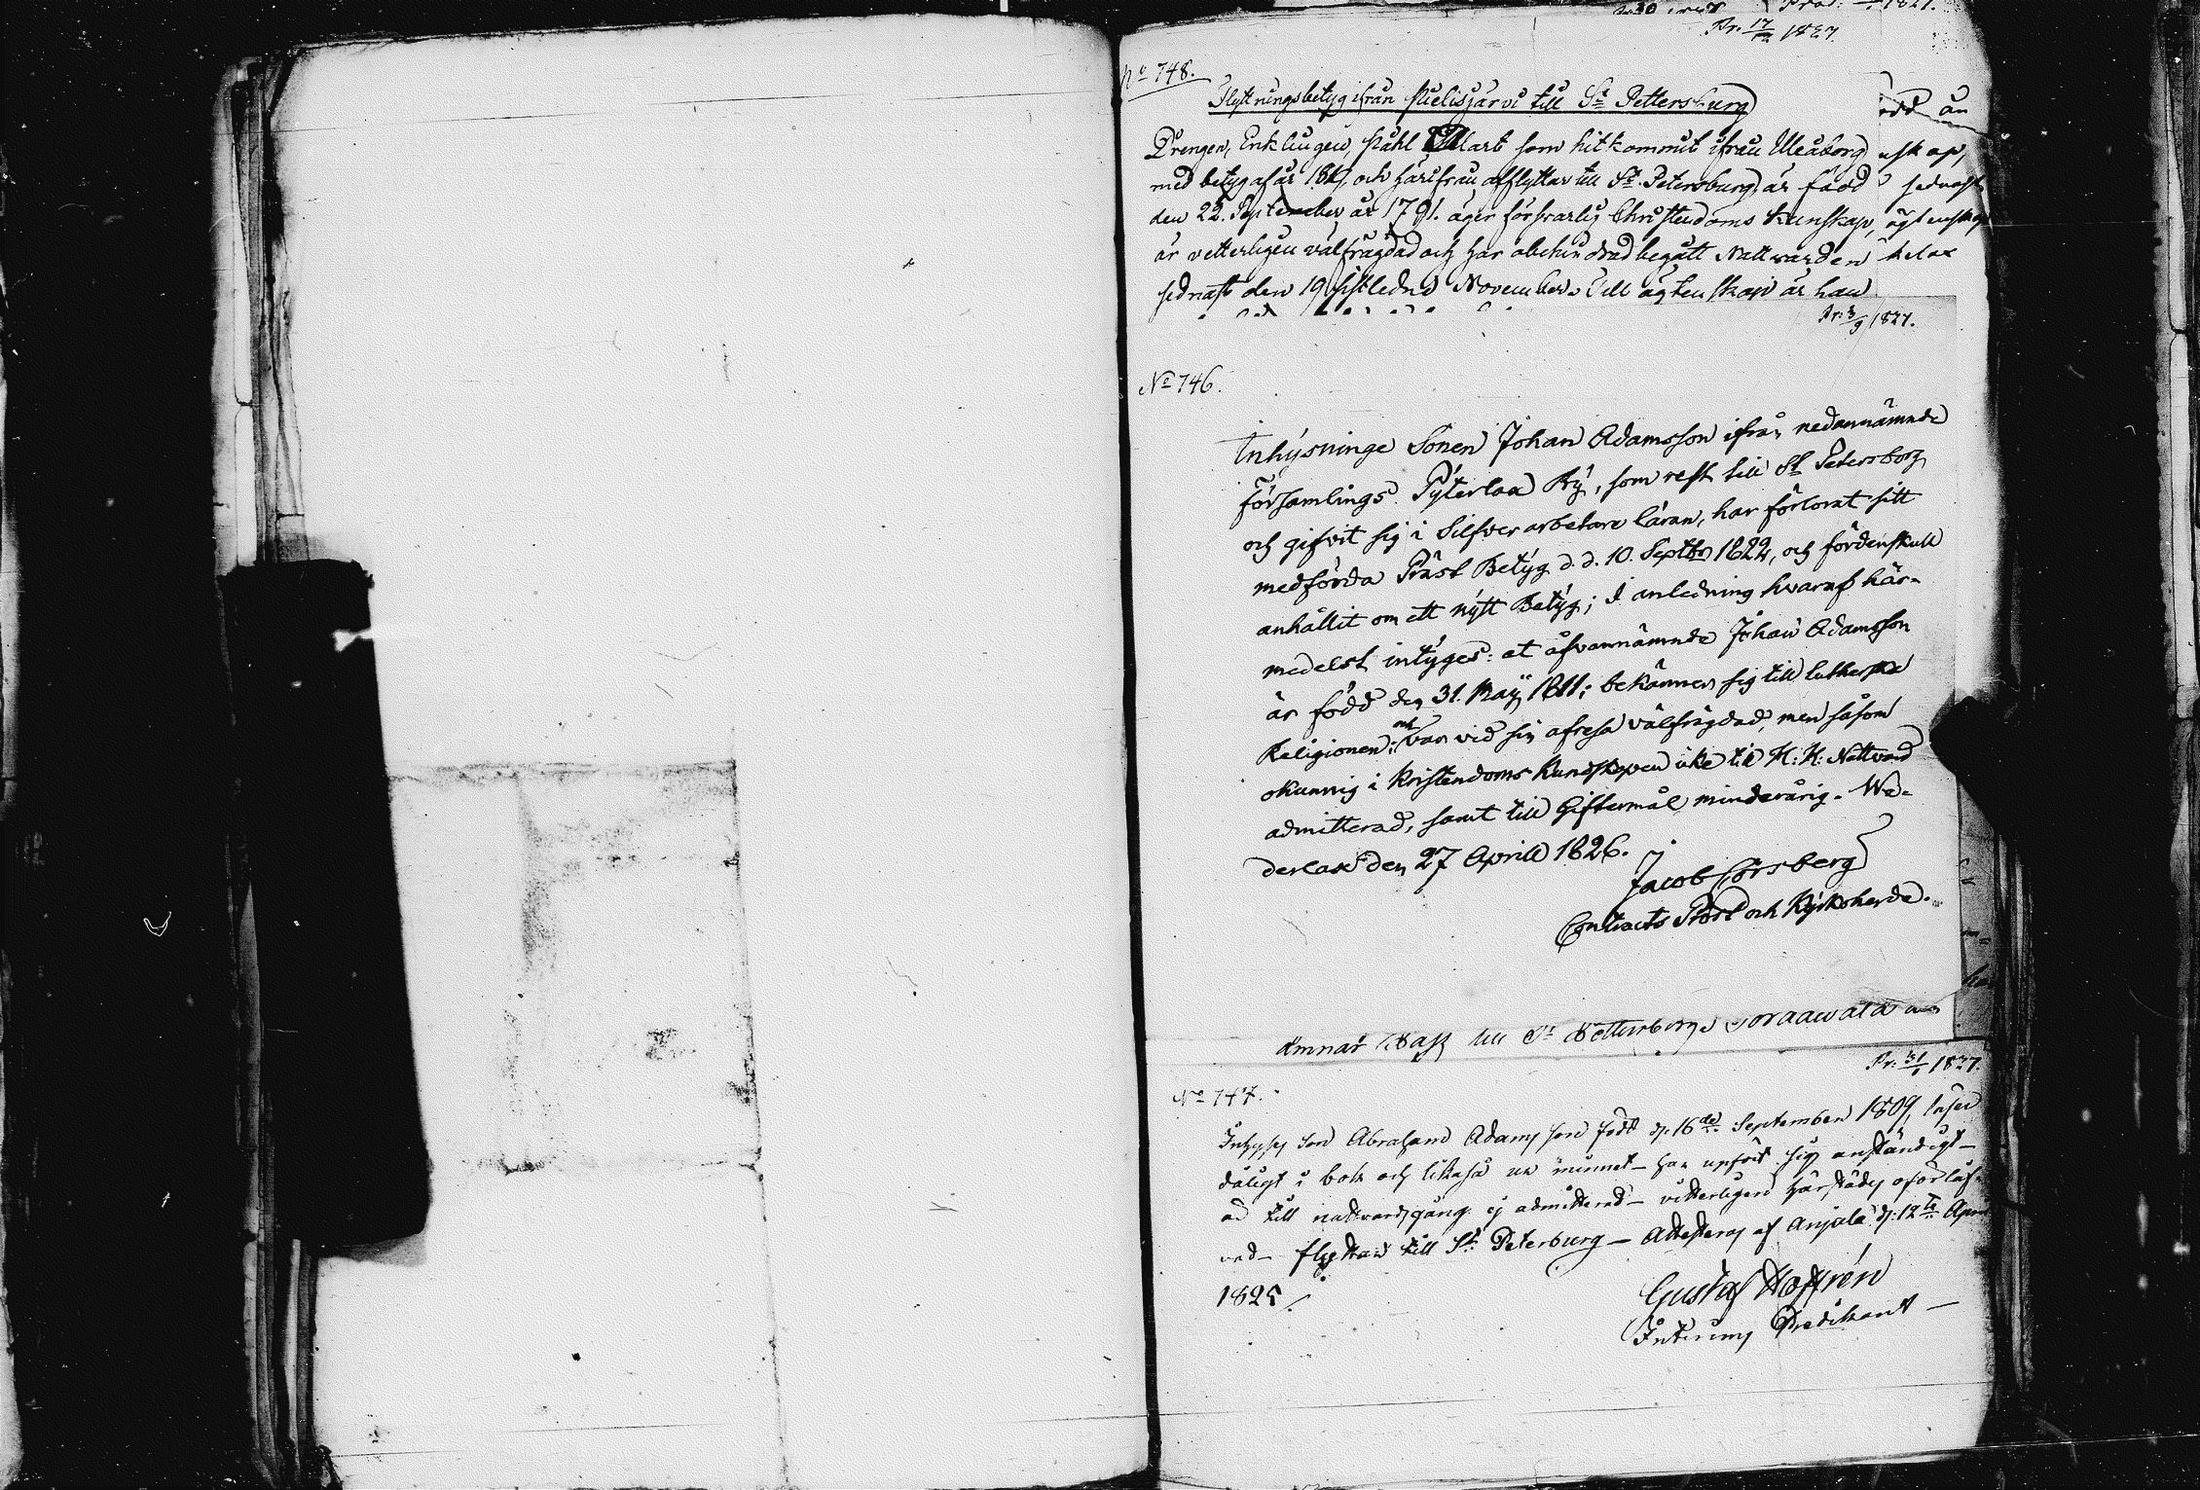 Pr. 17/12 1827
No 748.
Flyttningsbetyg ifrån Pielisjärvi till St Pettersburg
Drengen, Enklingen, Påhl som hitkommit ifrån Uleåborg
med betyg af år och härifrån afflyttar till St. Petersburg, är född
den 22. September år 1791. äger försvarlig Christendoms kunskap,
är vetterligen välfrägdad och har obehindrad begått Nattvarden
sednast den 19 sistledne November. Till ägtenskap är han
Pr. 3/9 1827.
No 746.
Inhysninge Sonen Johan Adamsson ifrån nedannämnde
församlings Pyterlax By, som rest till St Petersborg
och gifvit sig i Silfverarbetare läran, har förlorat sitt
medförda Präst Betyg d. d. 10. Septbr 1822, och fördenskull
anhållit om ett nytt Betyg; i anledning hvaraf här-
medelst intygas: at åfvannämnde Johan Adamsson
är född den 31. Maji 1811; bekänner sig till lutherska
Religionen; och var vid sin afresa välfrägdad, men såsom
okunnig i Kristendoms Kunskapen icke til H: H: Nattvard
admitterad, samt till Giftermål minderårig. We-
derlax den 27 Aprill 1826.
Jacob Forsberg
Contracts Prost och Kyrkoherde.
ämnar till St Pettersborg
Pr. 31/1 1827.
No 747.
Inhyses Son Abraham Adamsson född d. 16de September 1809, läser
dåligt i bok och likaså ur minnet - har upfört sig anständigt -
ad till nattvardsgång ej admitterad - vitterligen härstädes oförlåf-
vad - flyttar till St: Peterburg - Attesteras af Anjala d: 12te April
1825.
Gustaf
Interims Predikant -